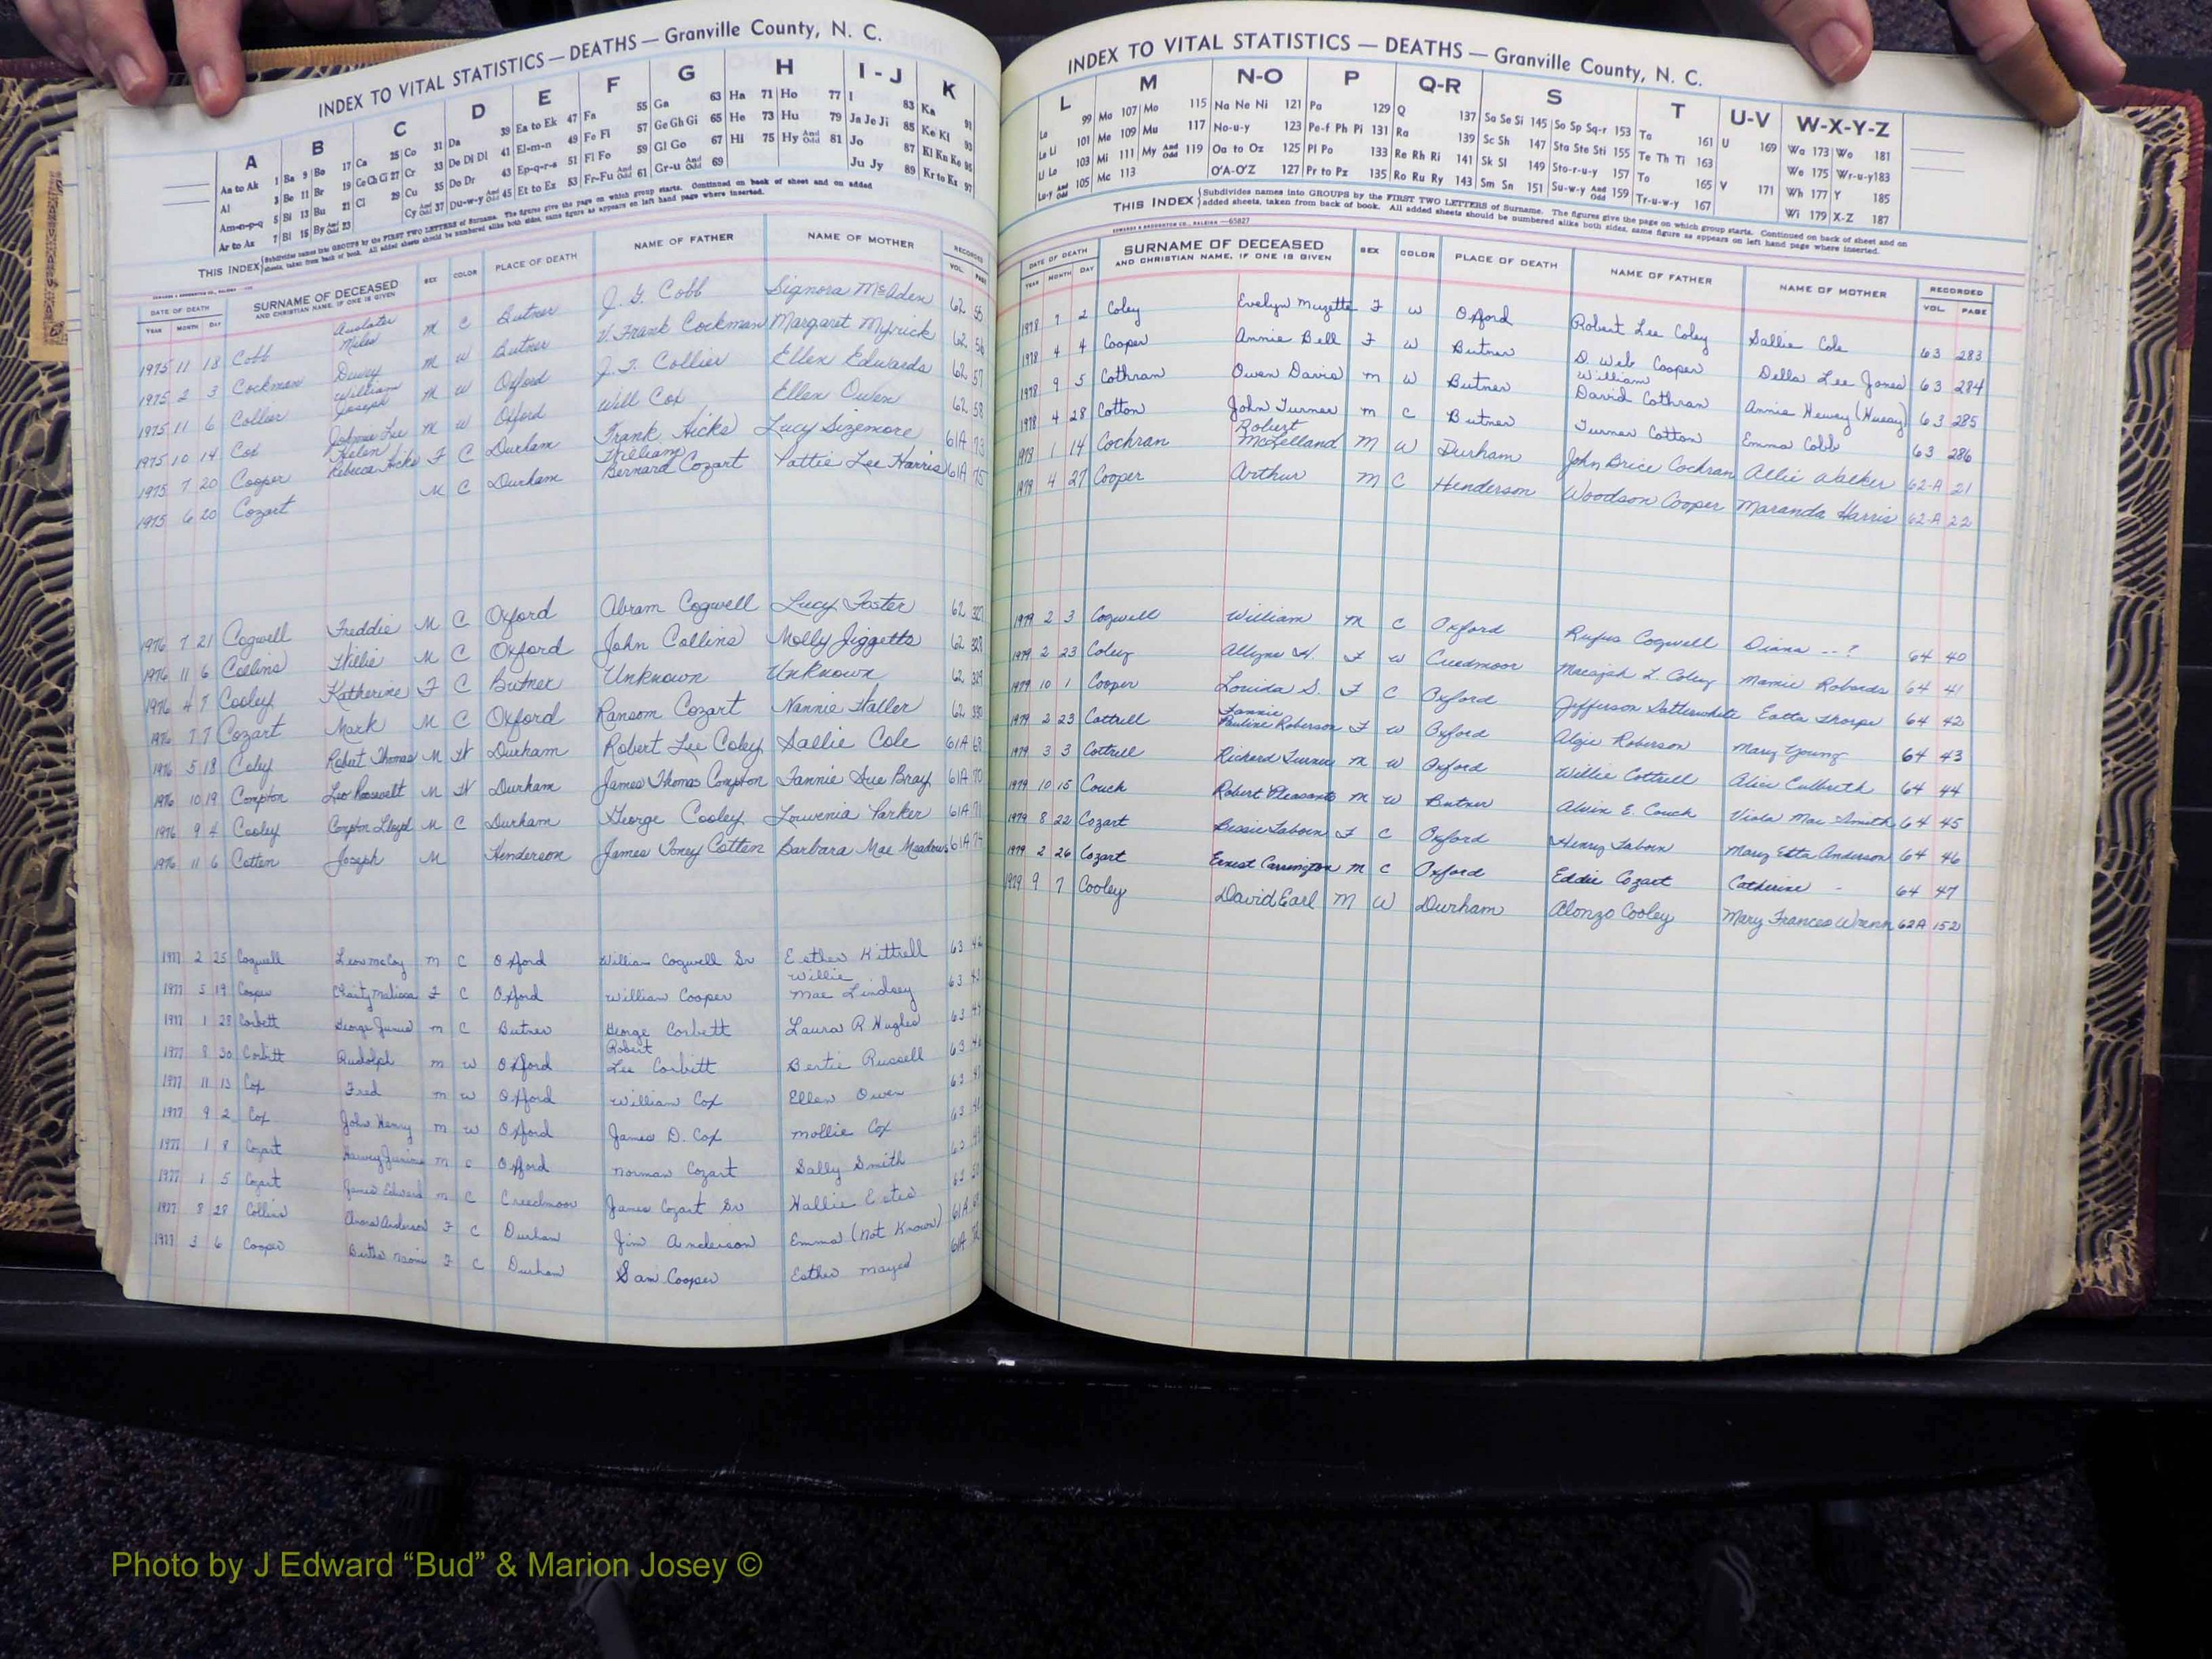 INDEX TO VITAL STATISTICS — DEATHS — Granville County, N. C.
A B C D E F G H I - J K
Aa to Ak 1 Ba 9 Bo 17 Ca 25 Co 31 Da 39 Ea to Ek 47 Fa 55 Ga 63 Ha 71 Ho 77 I 83 Ka 91
Al 3 Be 11 Br 19 Ce Ch Ci 27 Cr 33 De Di Dl 41 El-m-n 49 Fe Fi 57 Ge Gh Gi 65 He 73 Hu 79 Ja Je Ji 85 Ke Kl 93
Am-n-p-q 5 Bi 13 Bu 21 Cl 29 Cu 35 Do Dr 43 Ep-q-r-s 51 Fl Fo 59 Gl Go 67 Hi 75 Hy And Odd 81 Jo 87 Kl Kn Ko 95
Ar to Az 7 Bl 15 By And Odd 23 Cy And Odd 37 Du-w-y And Odd 45 Et to Ez 53 Fr-Fu And Odd 61 Gr-u And Odd 69 Ju Jy 89 Kr to Kz 97
THIS INDEX Subdivides names into GROUPS by the FIRST TWO LETTERS of Surname. The figures give the page on which group starts. Continued on back of sheet and on added
sheets, taken from back of book. All added sheets should be numbered alike both sides, same figure as appears on left hand page where inserted.
DATE OF DEATH SURNAME OF DECEASED SEX COLOR PLACE OF DEATH NAME OF FATHER NAME OF MOTHER RECORDED
YEAR MONTH DAY AND CHRISTIAN NAME, IF ONE IS GIVEN VOL. PAGE
1975 11 18 Cobb Miles M C Butner J. G. Cobb Signora McAden 62 55
1975 2 3 Cockman Dewy M W Butner V. Frank Cockman Margaret Myrick 62 56
1975 11 6 Collier William Joseph M W Oxford J. T. Collier Ellen Edwards 62 57
1975 10 14 Cox Johnnie Lee M W Oxford Will Cox Ellen Owen 62 58
1975 7 20 Cooper Helen Rebecca Hicks F C Durham Frank Hicks Lucy Sizemore 61A 73
1975 6 20 Cozart M C Durham William Bernard Cozart Pattie Lee Harris 61A 75
1976 7 21 Cogwell Freddie M C Oxford Abram Cogwell Lucy Foster 62 327
1976 11 6 Collins Willie M C Oxford John Collins Molly Jiggetts 62 328
1976 4 7 Cooley Katherine F C Butner Unknown Unknown 62 329
1976 7 7 Cozart Mark M C Oxford Ransom Cozart Nannie Haller 62 330
1976 5 18 Coley Robert Thomas M W Durham Robert Lee Coley Sallie Cole 61A 69
1976 10 19 Compton Leo Roosevelt M W Durham James Thomas Compton Fannie Sue Bray 61A 70
1976 9 4 Cooley Compton Lloyd M C Durham George Cooley Louvenia Parker 61A 71
1976 11 6 Cotten Joseph M Henderson James Toney Cotten Barbara Mae Meadows 61A 74
1977 2 25 Cogwell Leon McCoy M C Oxford William Cogwell Sr Esther Kittrell 63
1977 5 19 Cooper Charity Malissa F C Oxford William Cooper Willie Mae Lindsey 63
1977 1 28 Corbett George Junius M C Butner George Corbett Laura R Hughes 63
1977 8 30 Corbitt Rudolph M W Oxford Robert Lee Corbitt Bertie Russell 63
1977 11 13 Cox Fred M W Oxford William Cox Ellen Owen 63
1977 9 2 Cox John Henry M W Oxford James D. Cox Mollie Cox 63
1977 1 8 Cozart Harvey Junius M C Oxford Norman Cozart Sally Smith
1977 1 5 Cozart James Edward M C Creedmoor James Cozart Sr Hallie Estes
1977 8 28 Collins Anderson F C Durham Jim Anderson Emma (Not Known) 61A
1977 3 6 Cooper Bertha Naomi F C Durham Sam Cooper Esther Mayed 61A
INDEX TO VITAL STATISTICS — DEATHS — Granville County, N. C.
L M N-O P Q-R S T U-V W-X-Y-Z
La 99 Ma 107 Mo 115 Na Ne Ni 121 Pa 129 Q 137 Sa Se Si 145 So Sp Sq-r 153 Ta 161 U 169 Wa 173 Wo 181
Le Li 101 Me 109 Mu 117 No-u-y 123 Pe-f Ph Pi 131 Ra 139 Sc Sh 147 Sta Ste Sti 155 Te Th Ti 163 We 175 Wr-u-y 183
Ll Lo 103 Mi 111 My And Odd 119 Oa to Oz 125 Pl Po 133 Re Rh Ri 141 Sk Sl 149 Sto-r-u-y 157 To 165 V 171 Wh 177 Y 185
Lu-y And Odd 105 Mc 113 O'A-O'Z 127 Pr to Pz 135 Ro Ru Ry 143 Sm Sn 151 Su-w-y And Odd 159 Tr-u-w-y 167 Wi 179 X-Z 187
THIS INDEX Subdivides names into GROUPS by the FIRST TWO LETTERS of Surname. The figures give the page on which group starts. Continued on back of sheet and on
added sheets, taken from back of book. All added sheets should be numbered alike both sides, same figure as appears on left hand page where inserted.
EDWARDS & BROUGHTON CO., RALEIGH —65827
DATE OF DEATH SURNAME OF DECEASED SEX COLOR PLACE OF DEATH NAME OF FATHER NAME OF MOTHER RECORDED
YEAR MONTH DAY AND CHRISTIAN NAME, IF ONE IS GIVEN VOL. PAGE
1978 7 2 Coley Evelyn Muzette F W Oxford Robert Lee Coley Sallie Cole 63 283
1978 4 4 Cooper Annie Bell F W Butner D. Web Cooper Della Lee Jones 63 284
1978 9 5 Cothran Owen Davis M W Butner William David Cothran Annie Hewey (Husay) 63 285
1978 4 28 Cotton John Turner M C Butner Turner Cotton Emma Cobb 63 286
1978 1 14 Cochran Robert McLelland M W Durham John Brice Cochran Allie Walker 62-A 21
1978 4 27 Cooper Arthur M C Henderson Woodson Cooper Maranda Harris 62-A 22
1979 2 3 Cogwell William M C Oxford Rufus Cogwell Diana --? 64 40
1979 2 23 Coley Allyne H. F W Creedmoor Macajah L. Coley Mamie Robards 64 41
1979 10 1 Cooper Louida S. F C Oxford Jefferson Satterwhite Eatta Thorpe 64 42
1979 2 23 Cottrell Fannie Pauline Roberson F W Oxford Algie Roberson Mary Young 64 43
1979 3 3 Cottrell Richard Turner M W Oxford Willie Cottrell Alice Culbreth 64 44
1979 10 15 Couch Robert Pleasants M W Butner Alvin E. Couch Viola Mae Smith 64 45
1979 8 22 Cozart Bessie Taborn F C Oxford Henry Taborn Mary Etta Anderson 64 46
1979 2 26 Cozart Ernest Carrington M C Oxford Eddie Cozart Catherine - 64 47
1979 9 7 Cooley David Earl M W Durham Alonzo Cooley Mary Frances Wrenn 62A 152
Photo by J Edward “Bud” & Marion Josey ©